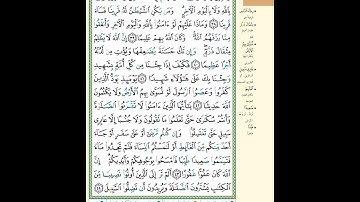 بِٱللَّهِ وَلَا بِٱلْيَوْمِ ٱلْءَاخِرِ ۗ وَمَن يَكُنِ ٱلشَّيْطَٰنُ لَهُۥ قَرِينًا فَسَآءَ
قَرِينًا ٣٨ وَمَاذَا عَلَيْهِمْ لَوْ ءَامَنُوا۟ بِٱللَّهِ وَٱلْيَوْمِ ٱلْءَاخِرِ وَأَنفَقُوا۟
مِمَّا رَزَقَهُمُ ٱللَّهُ ۚ وَكَانَ ٱللَّهُ بِهِمْ عَلِيمًا ٣٩ إِنَّ ٱللَّهَ لَا يَظْلِمُ
مِثْقَالَ ذَرَّةٍ ۖ وَإِن تَكُ حَسَنَةً يُضَٰعِفْهَا وَيُؤْتِ مِن لَّدُنْهُ
أَجْرًا عَظِيمًا ٤٠ فَكَيْفَ إِذَا جِئْنَا مِن كُلِّ أُمَّةٍۭ بِشَهِيدٍ
وَجِئْنَا بِكَ عَلَىٰ هَٰٓؤُلَآءِ شَهِيدًا ٤١ يَوْمَئِذٍ يَوَدُّ ٱلَّذِينَ
كَفَرُوا۟ وَعَصَوُا۟ ٱلرَّسُولَ لَوْ تُسَوَّىٰ بِهِمُ ٱلْأَرْضُ وَلَا يَكْتُمُونَ
ٱللَّهَ حَدِيثًا ٤٢ يَٰٓأَيُّهَا ٱلَّذِينَ ءَامَنُوا۟ لَا تَقْرَبُوا۟ ٱلصَّلَوٰةَ
وَأَنتُمْ سُكَٰرَىٰ حَتَّىٰ تَعْلَمُوا۟ مَا تَقُولُونَ وَلَا جُنُبًا إِلَّا عَابِرِى
سَبِيلٍ حَتَّىٰ تَغْتَسِلُوا۟ ۚ وَإِن كُنتُم مَّرْضَىٰٓ أَوْ عَلَىٰ سَفَرٍ أَوْ جَآءَ
أَحَدٌ مِّنكُم مِّنَ ٱلْغَآئِطِ أَوْ لَٰمَسْتُمُ ٱلنِّسَآءَ فَلَمْ تَجِدُوا۟ مَآءً
فَتَيَمَّمُوا۟ صَعِيدًا طَيِّبًا فَٱمْسَحُوا۟ بِوُجُوهِكُمْ وَأَيْدِيكُمْ ۗ إِنَّ
ٱللَّهَ كَانَ عَفُوًّا غَفُورًا ٤٣ أَلَمْ تَرَ إِلَى ٱلَّذِينَ أُوتُوا۟ نَصِيبًا مِّنَ
ٱلْكِتَٰبِ يَشْتَرُونَ ٱلضَّلَٰلَةَ وَيُرِيدُونَ أَن تَضِلُّوا۟ ٱلسَّبِيلَ ٤٤